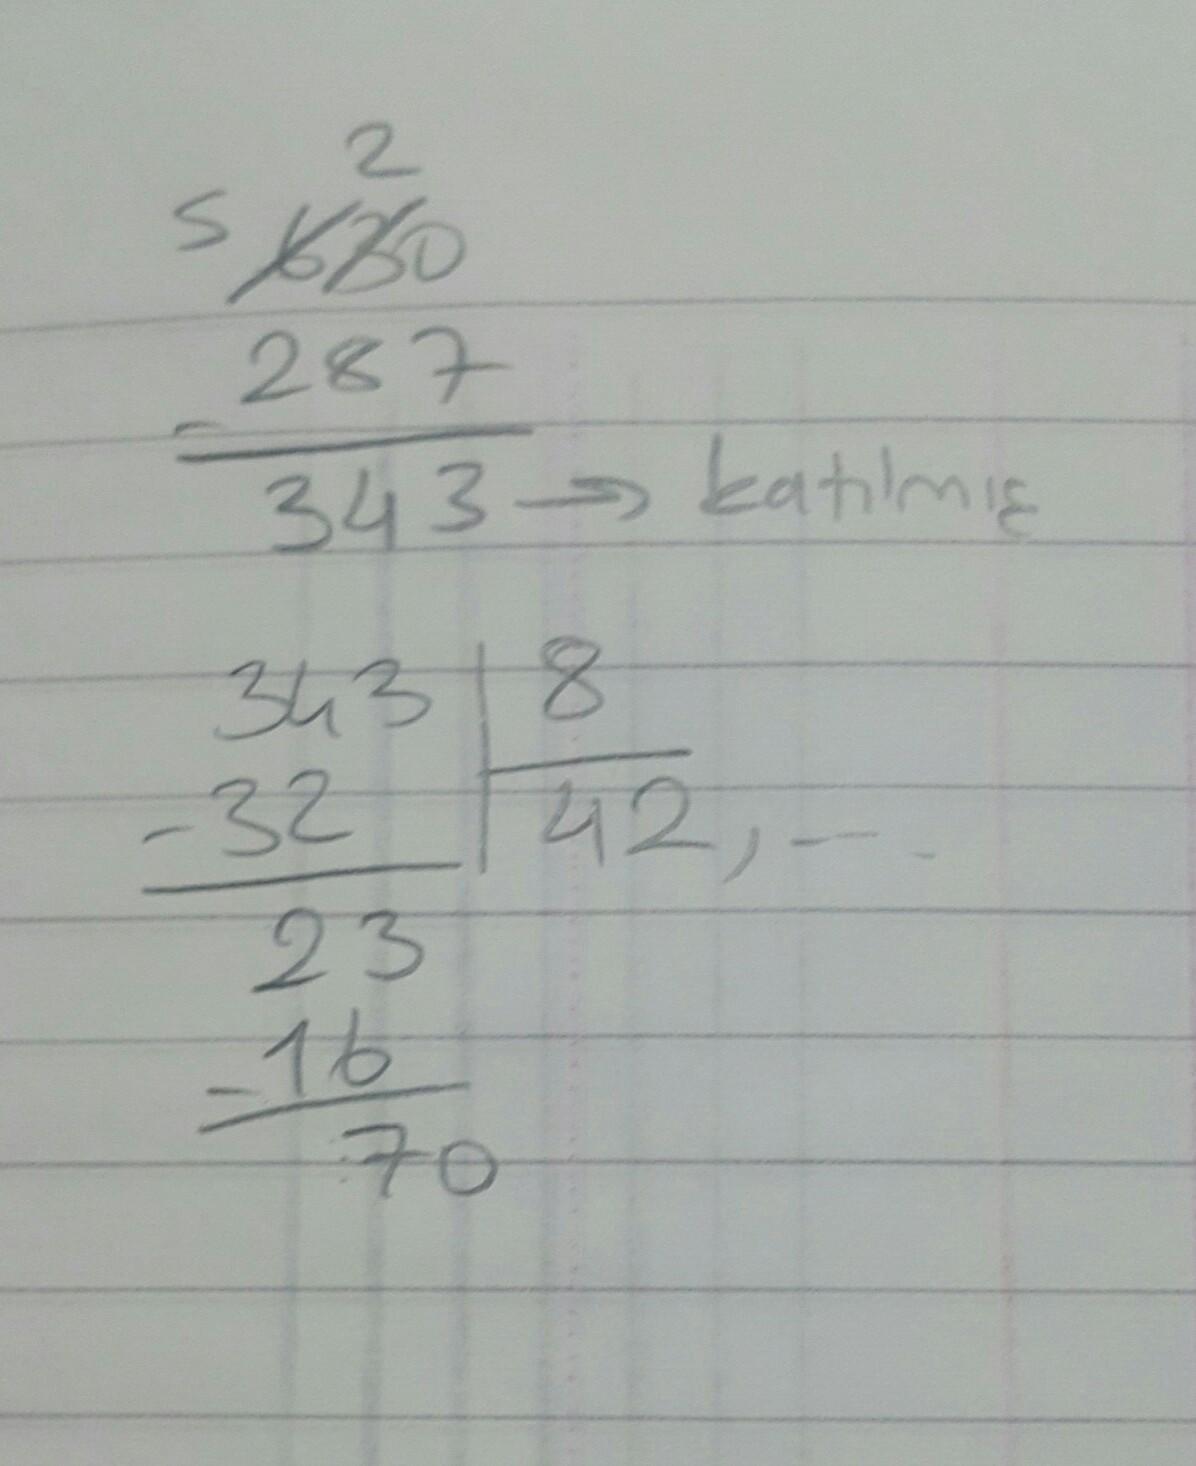 2
5 630
287
-
343 → katılmış
343 | 8
-32 42,--.
23
-16
70